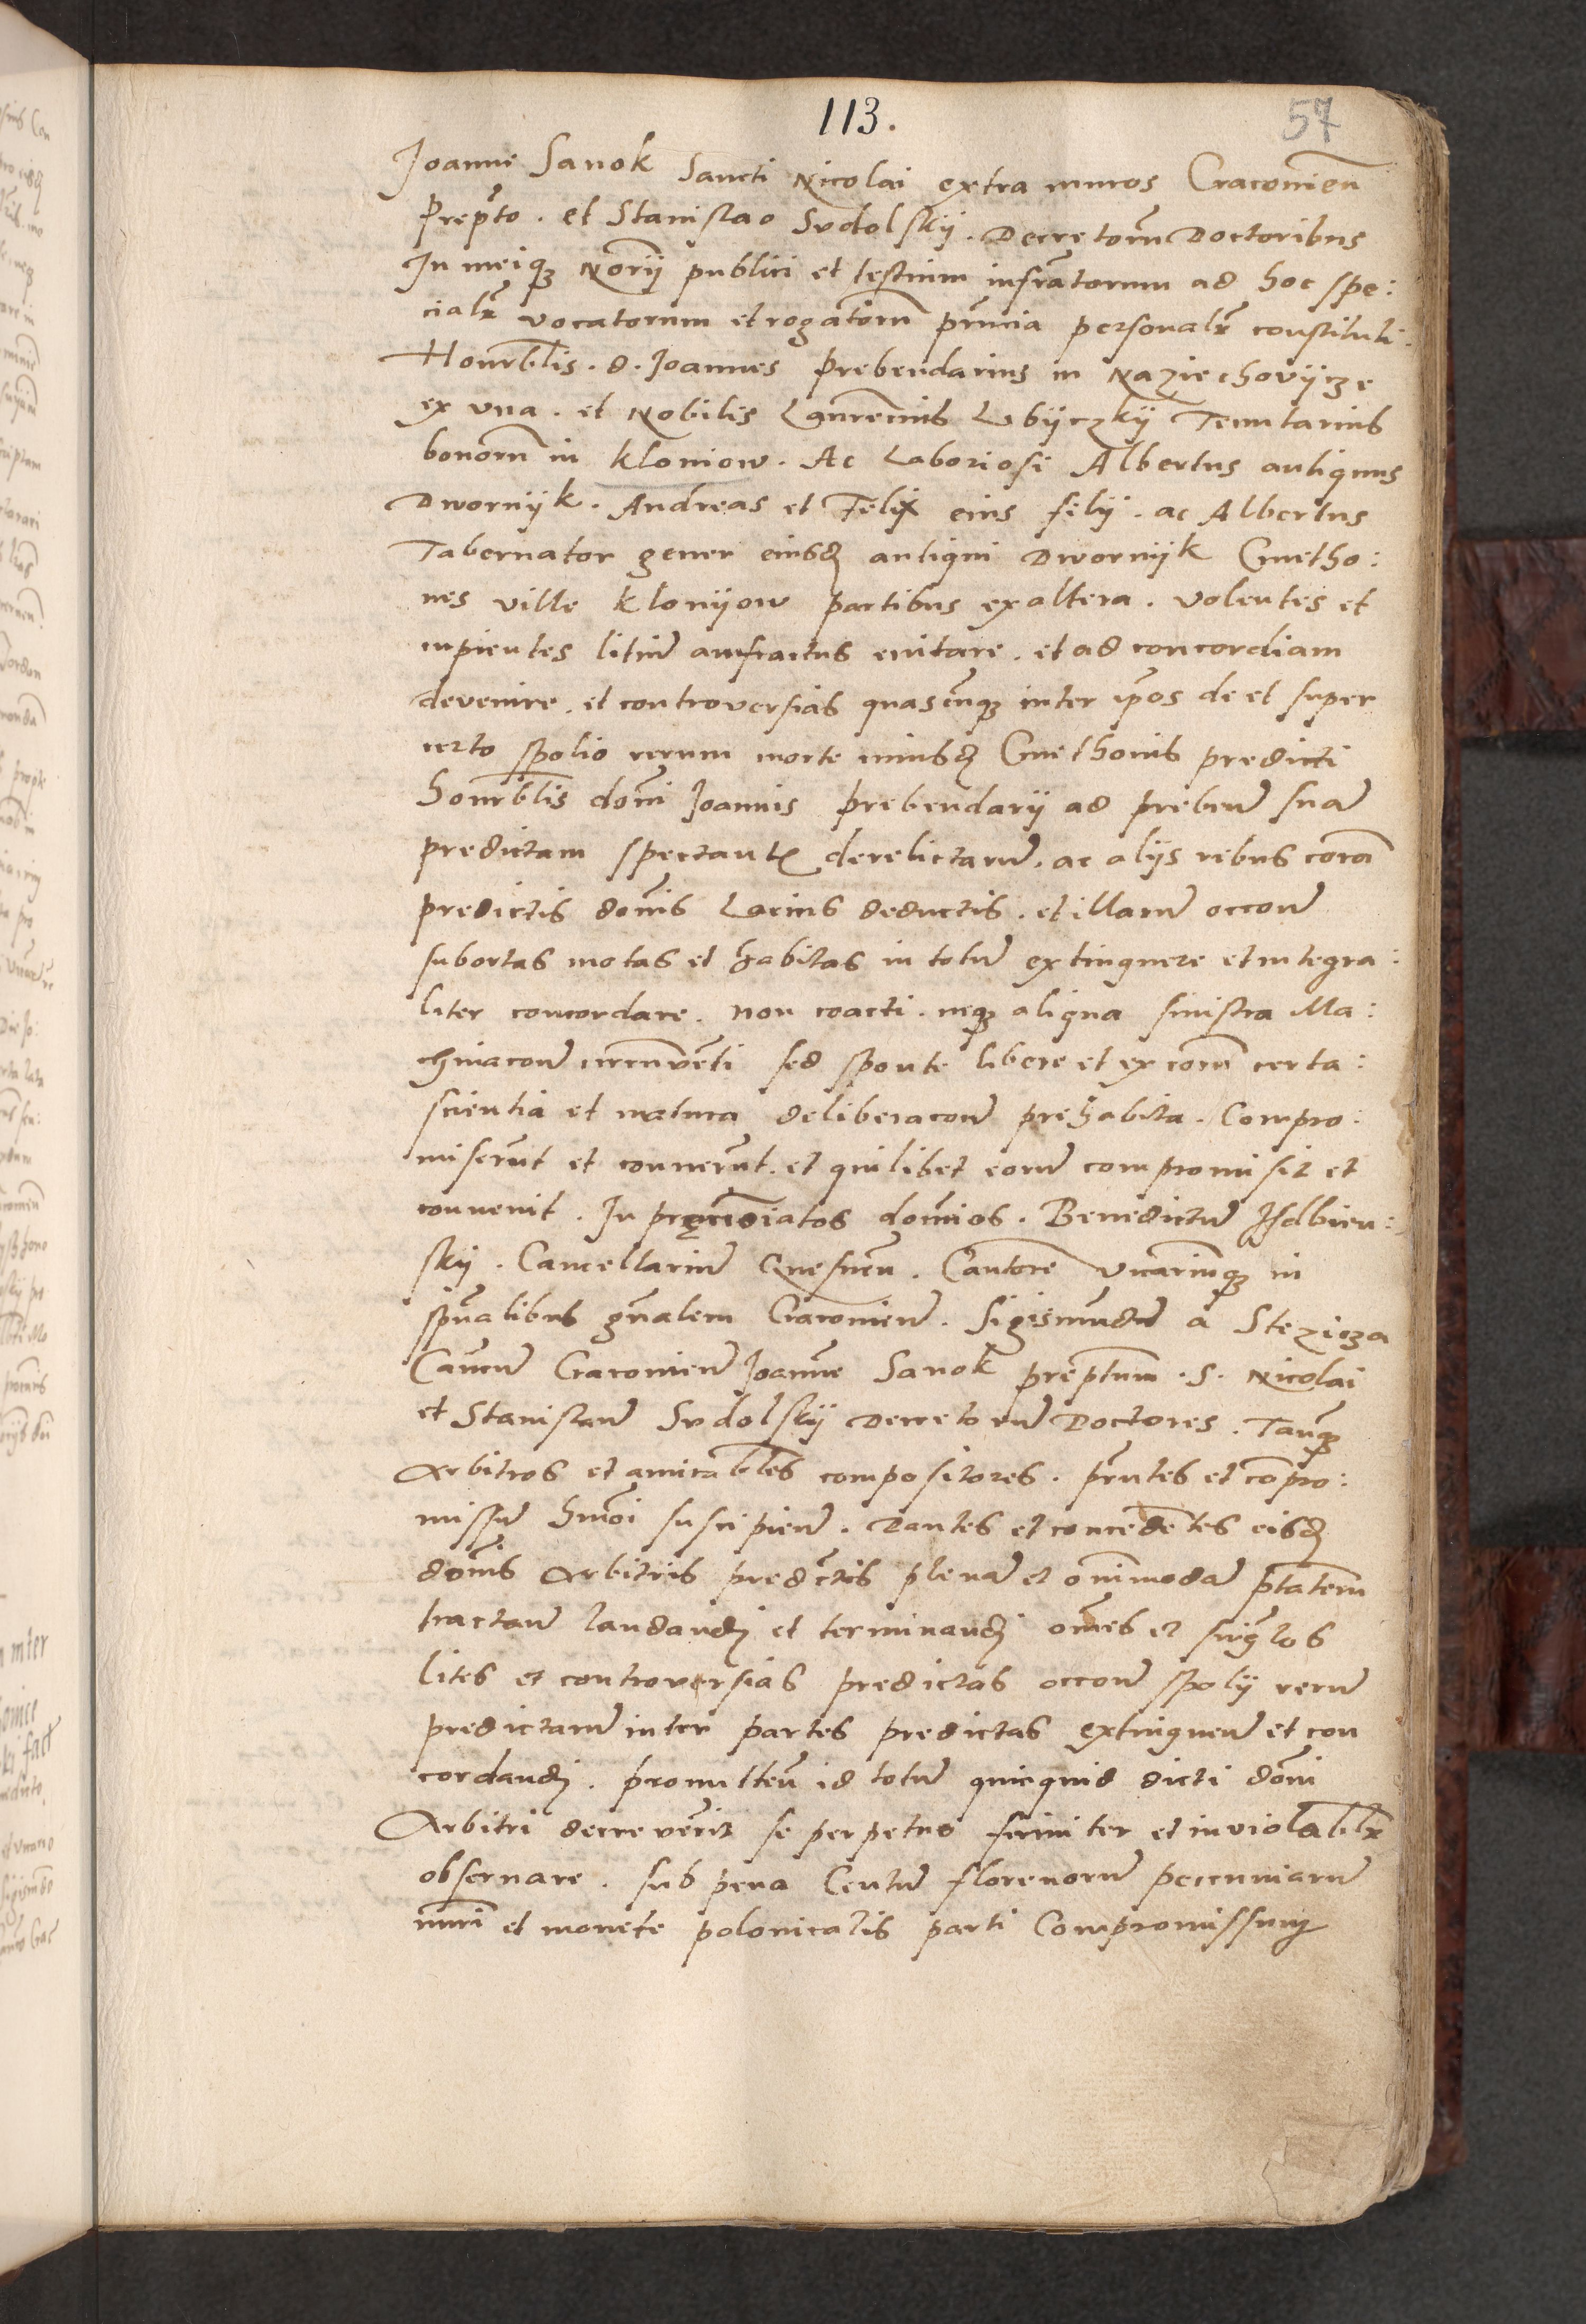 113.
57
Joanni Sanok Sancti Nicolai extra muros Cracovien
Prepto . et Stanislao Svdolskij . Decretorm Doctoribus
In meiqz Norij publici et testium infratorum ad hoc spe:
cialr vocatorum et rogatorm pnncia personalr constituti.
Honrblis . d . Joannes Prebendarius in Naziechovijcze
ex vna . et Nobilis Laurencius Lbijczkij Tenutarius
bonorm in Kloniow . Ac Laboriosi Albertus antiquus
Dwornijk . Andreas et Felix eius filij . ac Albertus
Tabernator gener eiusd antiqui Dwornijk Cmetho:
nes ville Klonijow partibus ex altera . volentes et
cupientes litium amfractus euitare . et ad concordiam
devenire . et controversias quascunqz inter ipos de et super
certo spolio rerum morte cuiusd Cmethonis predicti
honrblis domi Joannis prebendarij ad preben suam
predictam spectant derelictarum . ac alijs rebus coram
predictis domis Lacius deductis . et illarum occone
subortas motas et habitas in totum extinguere et integra:
liter concordare . non coacti . neqz aliqua sinistra Ma:
chinacone circumventi sed sponte libere et ex eorum certa:
scientia et matura deliberacone prehabita . Compro:
miserunt et convenerunt . et quilibet eorum compromisit et
convenit . In prenoiatos dominos . Benedictum Isdbien:
skij . Cancellarium Gnesnen . Cantorem vicariumqz in
spualibus gnalem Cracovien . Sigismundum a Stezicza
Cancum Cracovien Joannem Sanok preptum . S . Nicolai
et Stanislaum Svdolskij Decretorum Doctores . Tanqz
Arbitros et amicabiles compositores . pntes et compro:
missum hmoi suscipien . Dantes et concedentes eisd
domis Arbitris predictis plenam et omnimodam ptatem
tractan laudandi et terminandi omnes et singlos
lites et controversias predictas occone spolij rerum
predictarum inter partes predictas extinguen et con
cordandi . promitten id totum quicquid dicti domi
Arbitri decreverint se perpetuo firmiter et inviolabilr
observare . sub pena Centum florenorum peccuniarum
numri et monete polonicalis parti Compromissum